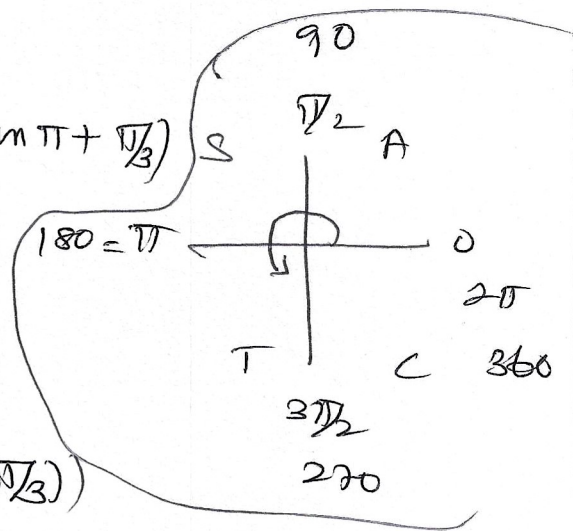 90
π/2
nπ + π/3) S A
180 = π 0
2π
T C 360
3π/2
270
π/3))